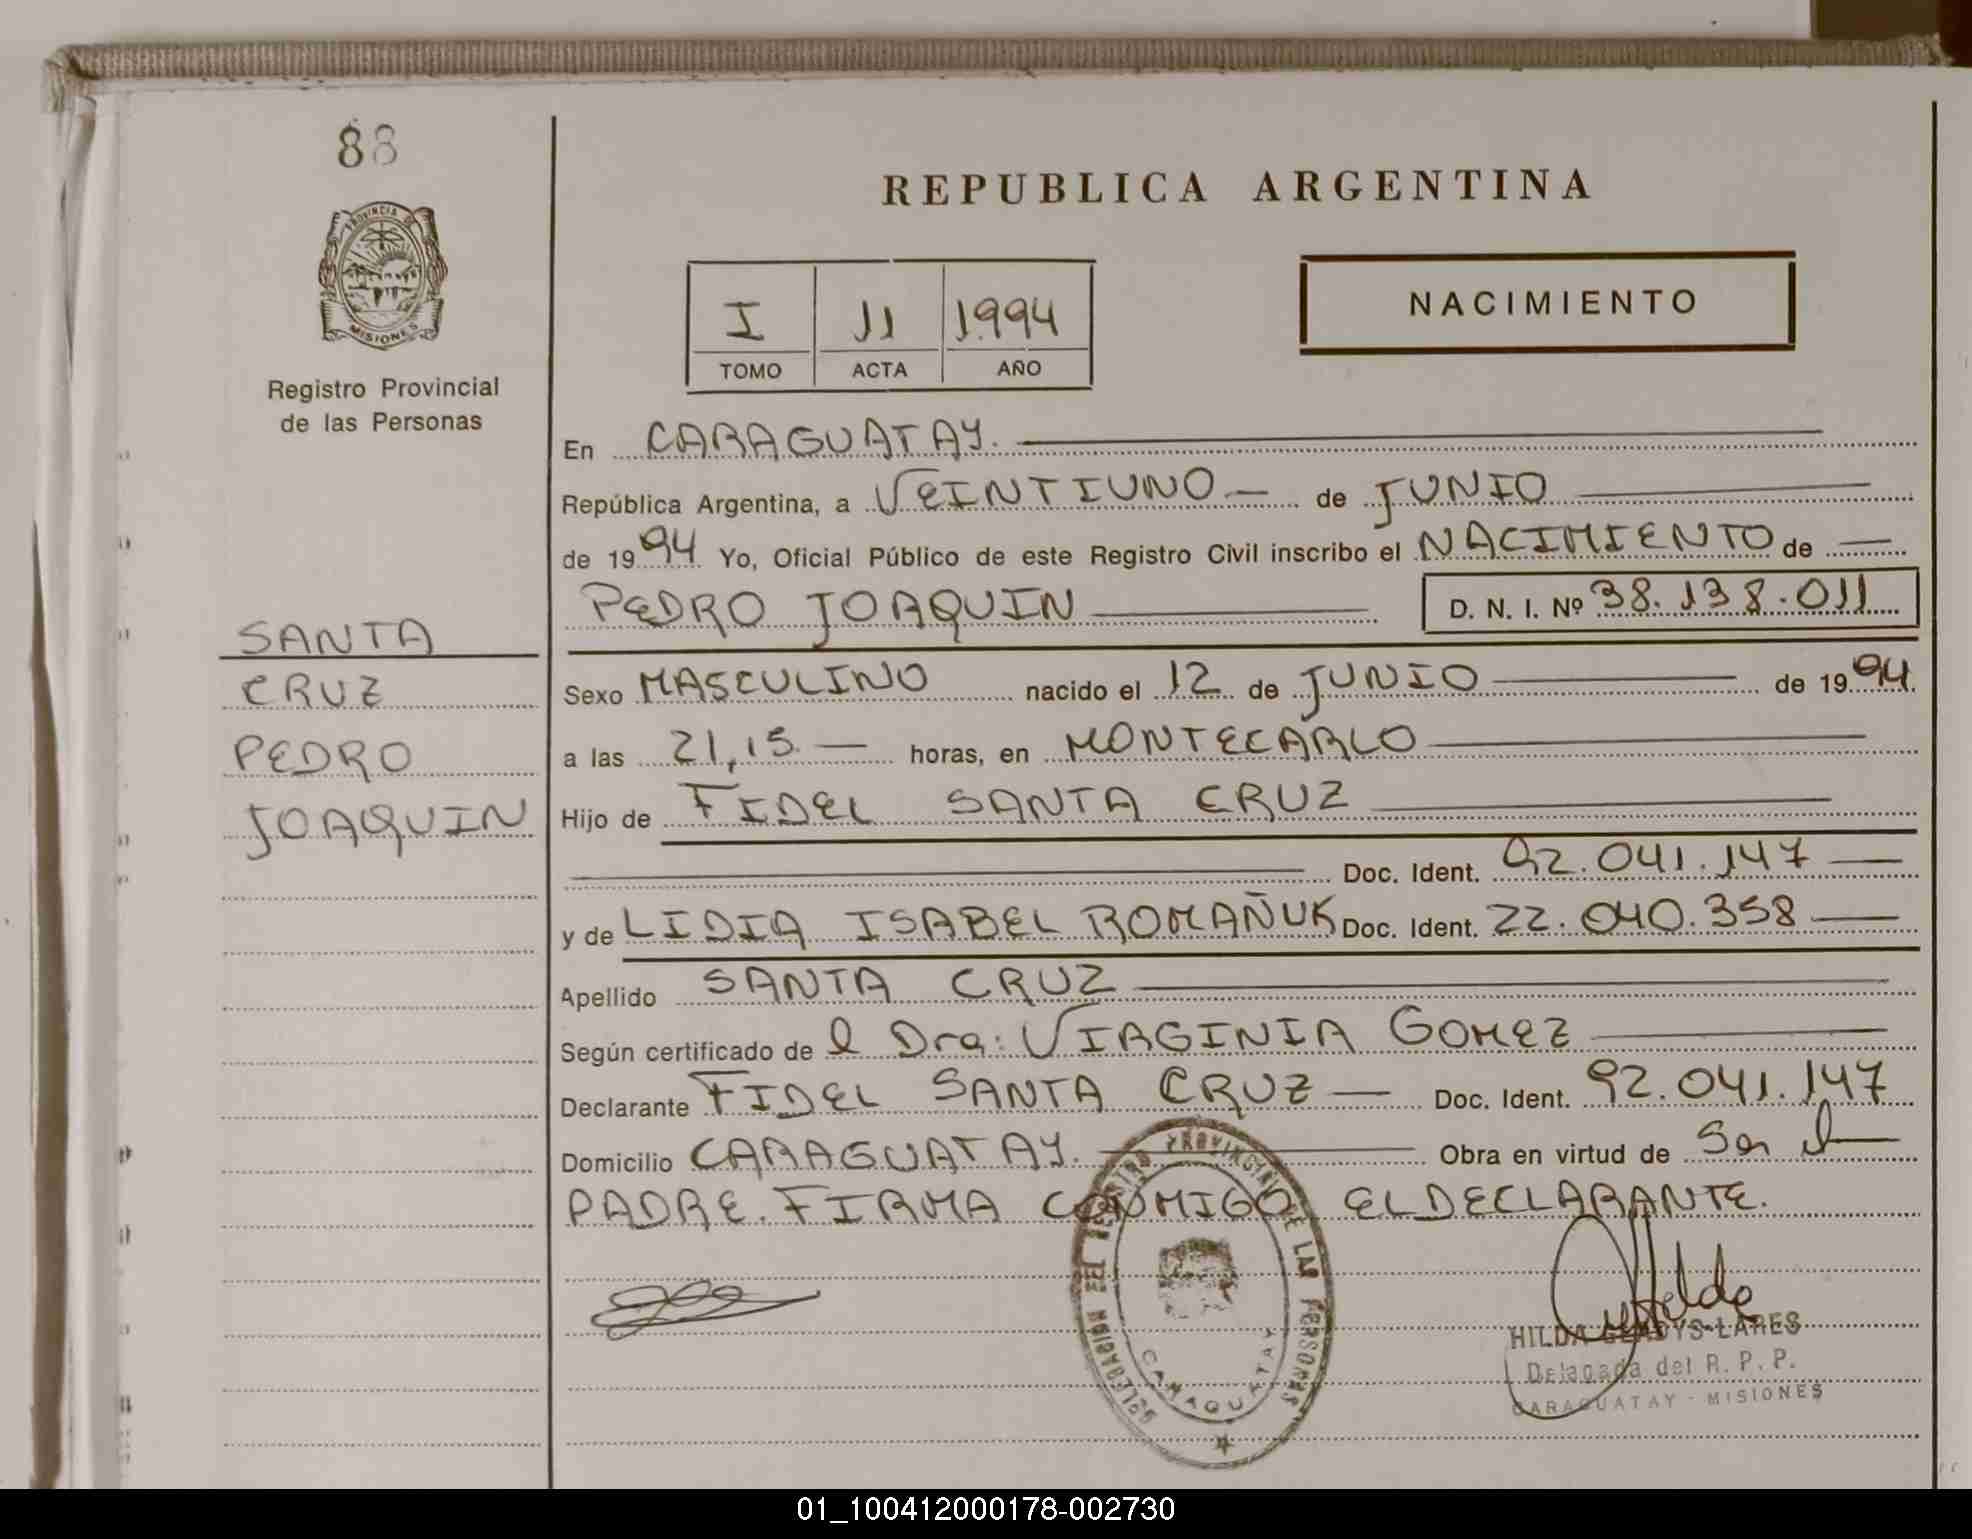 88
PROVINCIA DE
MISIONES
Registro Provincial
de las Personas
SANTA
CRUZ
PEDRO
JOAQUIN
REPUBLICA ARGENTINA
I 11 1994
TOMO ACTA AÑO
NACIMIENTO
En CARAGUATAY.
República Argentina, a VEINTIUNO de JUNIO
de 1994 Yo, Oficial Público de este Registro Civil inscribo el NACIMIENTO de
PEDRO JOAQUIN D. N. I. Nº 38.138.011
Sexo MASCULINO nacido el 12 de JUNIO de 1994.
a las 21,15. horas, en MONTECARLO
Hijo de FIDEL SANTA CRUZ
Doc. Ident. 92.041.147
y de LIDIA ISABEL ROMAÑUK Doc. Ident. 22.040.358
Apellido SANTA CRUZ
Según certificado de l Dra: VIRGINIA GOMEZ
Declarante FIDEL SANTA CRUZ Doc. Ident. 92.041.147
Domicilio CARAGUATAY. Obra en virtud de Ser el
PADRE. FIRMA CONMIGO EL DECLARANTE.
DELEGACION DEL REGISTRO PROVINCIAL DE LAS PERSONAS
CARAGUATAY
HILDA GLADYS LARES
Delegada del R. P. P.
CARAGUATAY - MISIONES
01_100412000178-002730